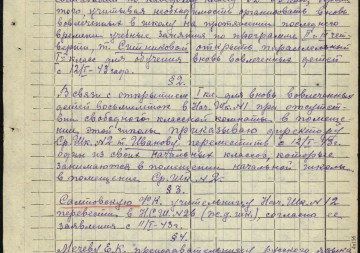 того, учитывая необходимость организовать вновь
вовлеченным в школу на протяжении последнего
времени учебные занятия по программе II-III чет-
верти, т. открыть параллельный
I-й класс для обучения вновь вовлеченных детей
с 12/II-43 года.
§2.
В связи с открытием I кл. для вновь вовлеченных
детей восьмилеток в Нач. Шк. №1 при отсутст-
вии свободного классной комнаты в помеще-
нии этой школы приказываю директору
Ср. Шк. №2 т. Иванову переместить с 12/II-43г.
один из своих начальных классов, которые
занимаются в помещении начальной школы
в помещение Ср. Шк. №2
§3.
учительницу Нач. Шк. №12
перевести в Н.С.Ш. №26 (ж.д.ш.), согласно ее
заявления с 11/II-43г.
§4.
Е.К. преподавательницу русского языка